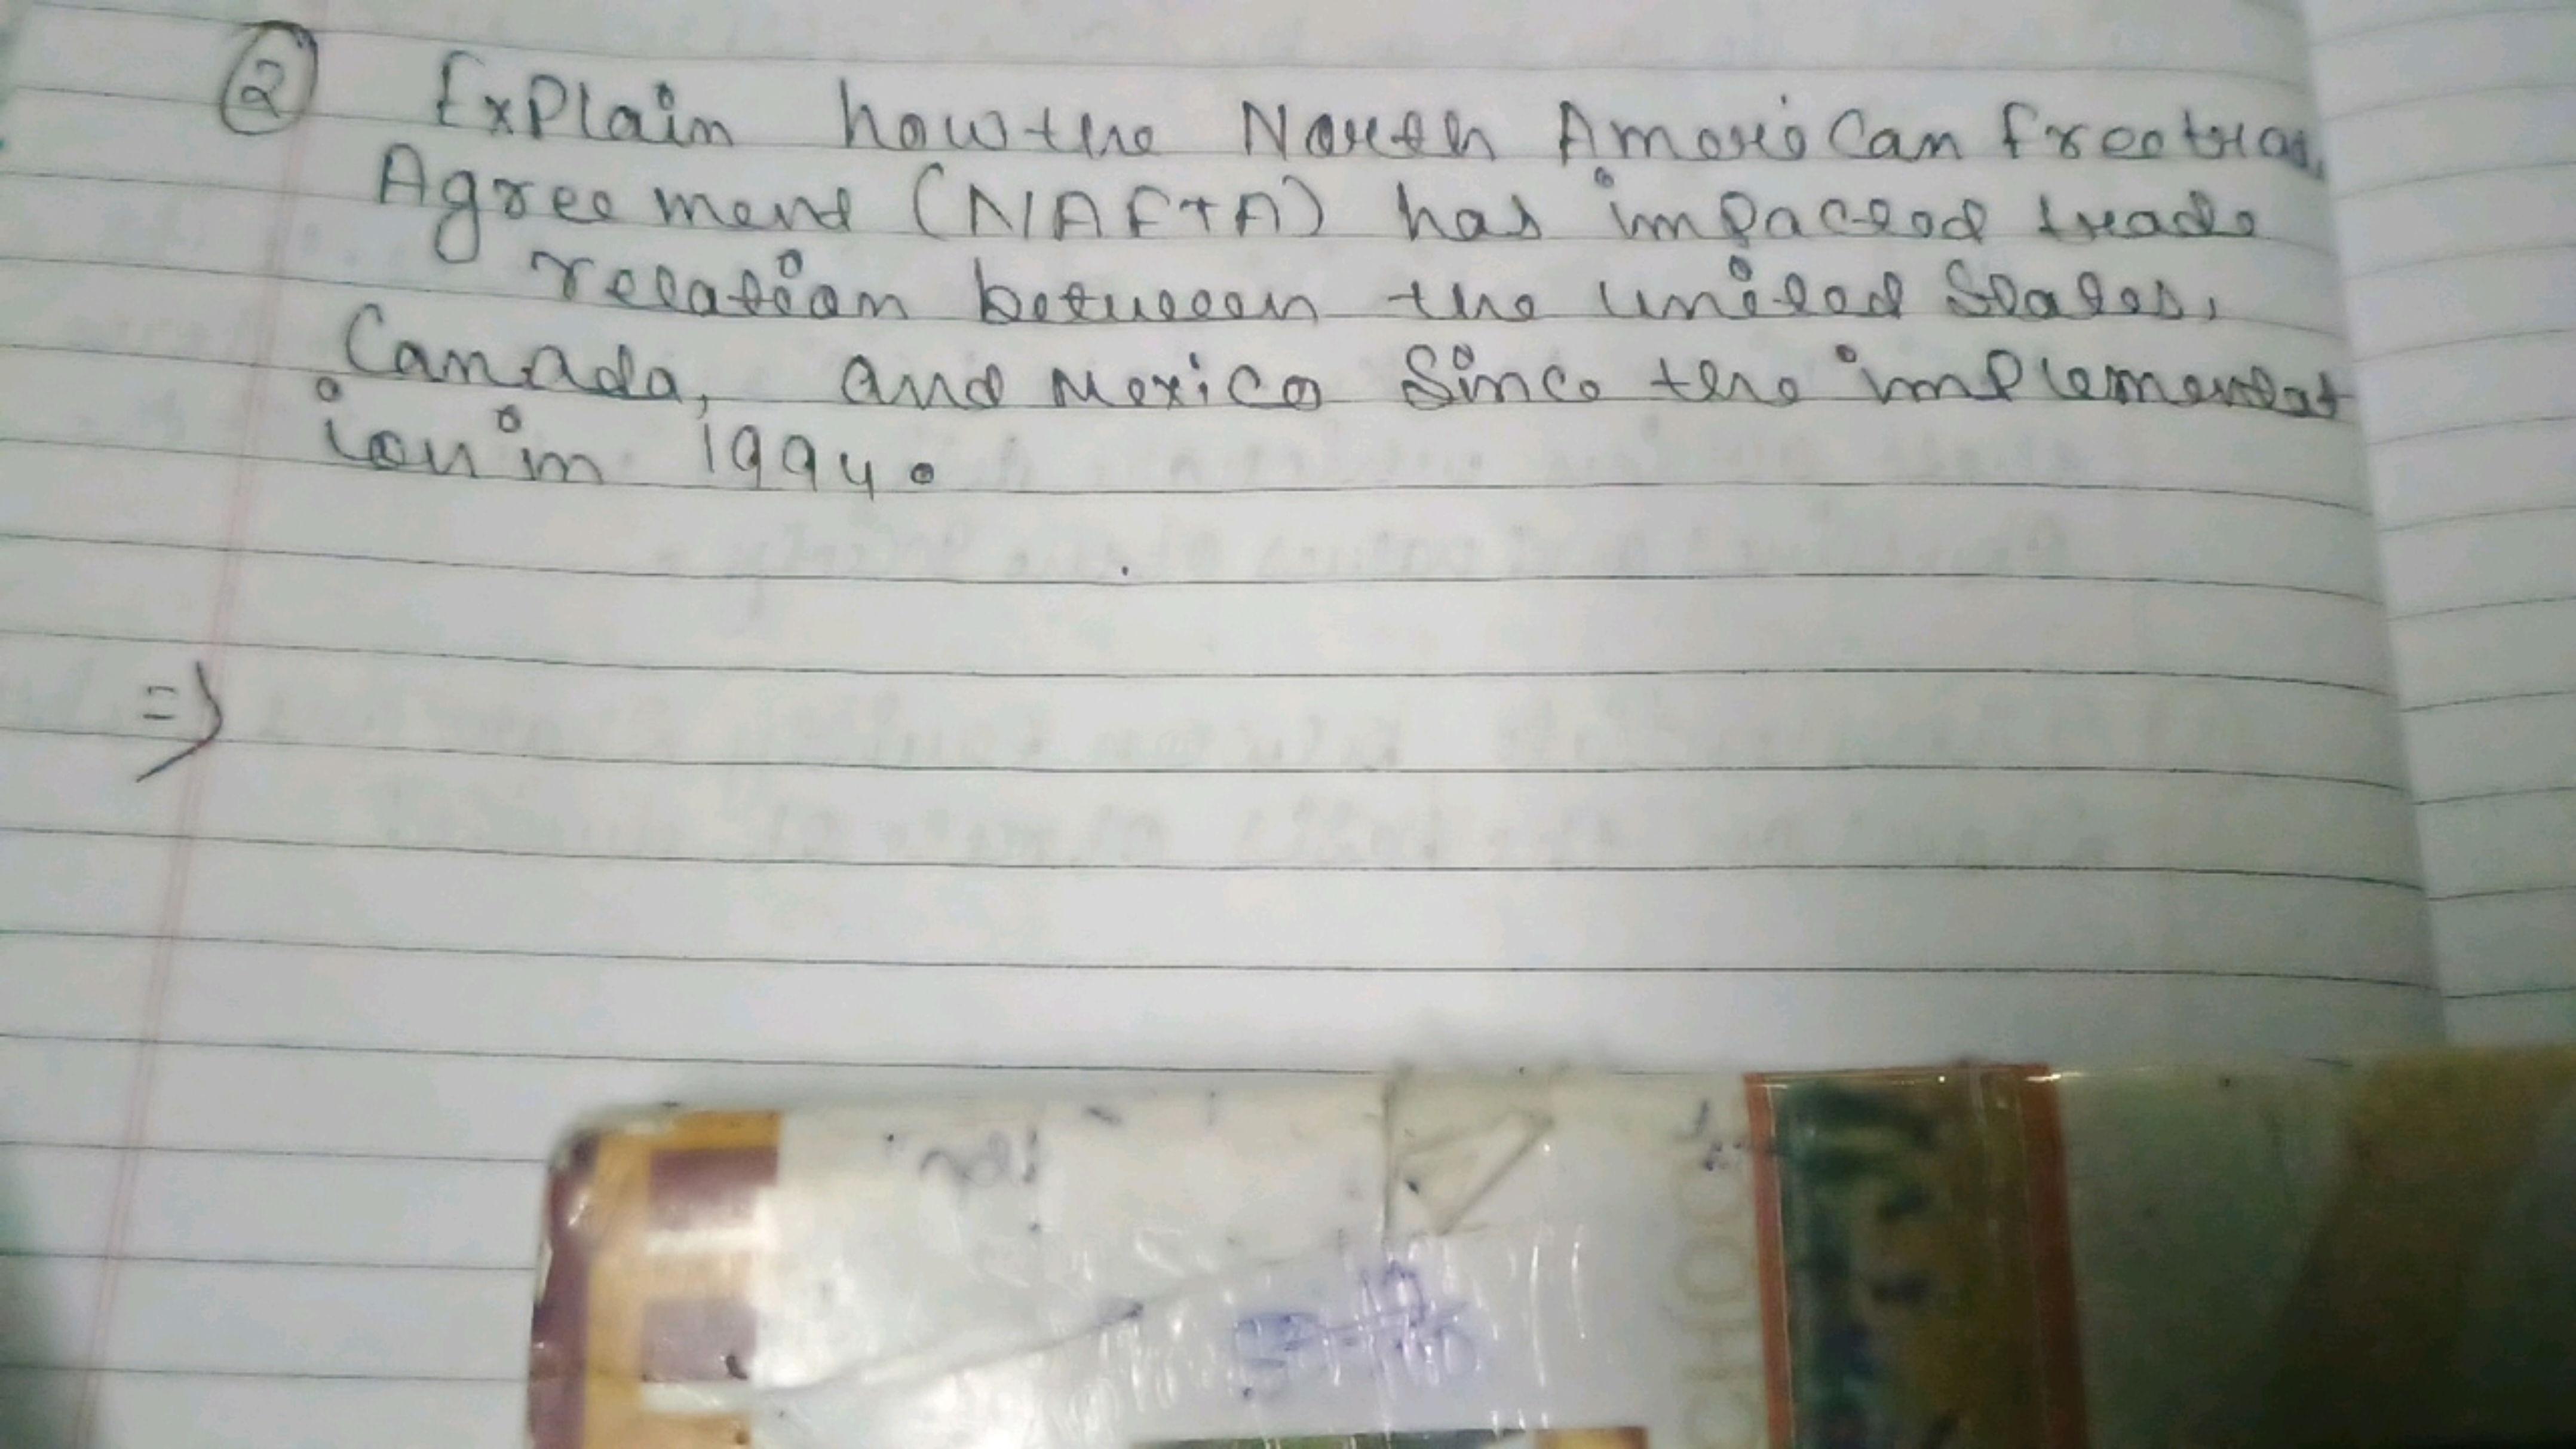 ② Explain how the North American free trad
Agreement (NAFTA) has impacted trade
relation between the united States,
Canada, and Mexico Since the implementat
ion in 1994.
=>